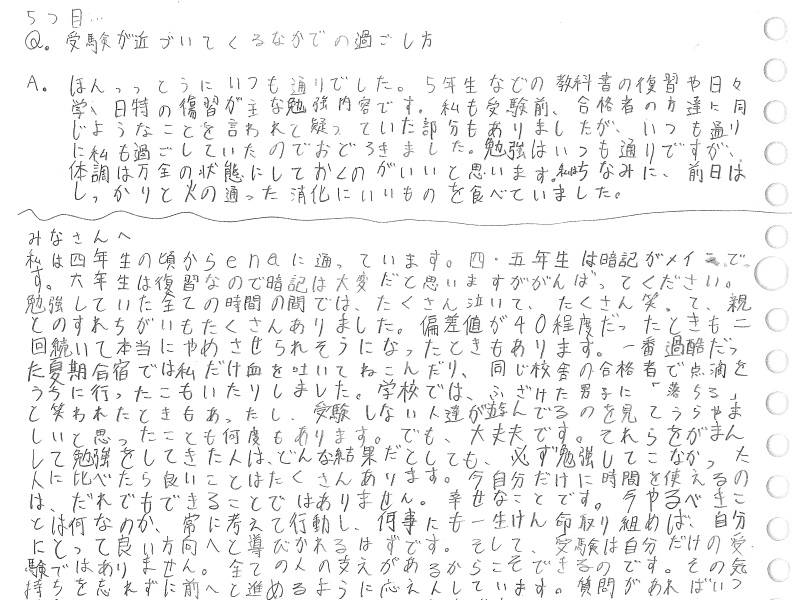 5つ目…
Q. 受験が近づいてくるなかでの過ごし方
A. ほんっっとうにいつも通りでした。5年生などの教科書の復習や日々
学、日特の復習が主な勉強内容です。私も受験前、合格者の方達に同
じようなことを言われて疑っていた部分もありましたが、いつも通り
に私も過ごしていたのでおどろきました。勉強はいつも通りですが、
体調は万全の状態にしておくのがいいと思います。ちなみに、前日は
しっかりと火の通った消化にいいものを食べていました。
みなさんへ
私は四年生の頃からenaに通っています。四・五年生は暗記がメインで
す。六年生は復習なので暗記は大変だと思いますががんばってください。
勉強していた全ての時間の間では、たくさん泣いて、たくさん笑って、親
とのすれちがいもたくさんありました。偏差値が40程度だったときも二
回続いて本当にやめさせられそうになったときもあります。一番過酷だっ
た夏期合宿では私だけ血を吐いてねこんだり、同じ校舎の合格者で点滴を
うちに行ったこもいたりしました。学校では、ふざけた男子に「落ちる」
と笑われたときもあったし、受験しない人達が遊んでるのを見てうらやま
しいと思ったことも何度もあります。でも、大丈夫です。それらをがまん
して勉強をしてきた人は、どんな結果だとしても、必ず勉強してこなかった
人に比べたら良いことはたくさんあります。今自分だけに時間を使えるの
は、だれでもできることではありません。幸せなことです。今やるべきこ
とは何なのか、常に考えて行動し、何事にも一生けん命取り組めば、自分
にとって良い方向へと導びかれるはずです。そして、受験は自分だけの受
験ではありません。全ての人の支えがあるからこそできるのです。その気
持ちを忘れずに前へと進めるように応えんしています。質問があればいつ